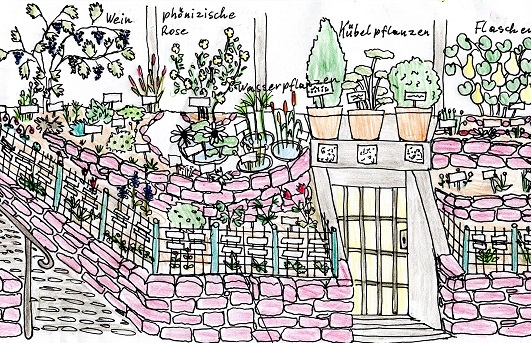 Wein
phönizische
Rose
Wasserpflanzen
Kübelpflanzen
Flaschen